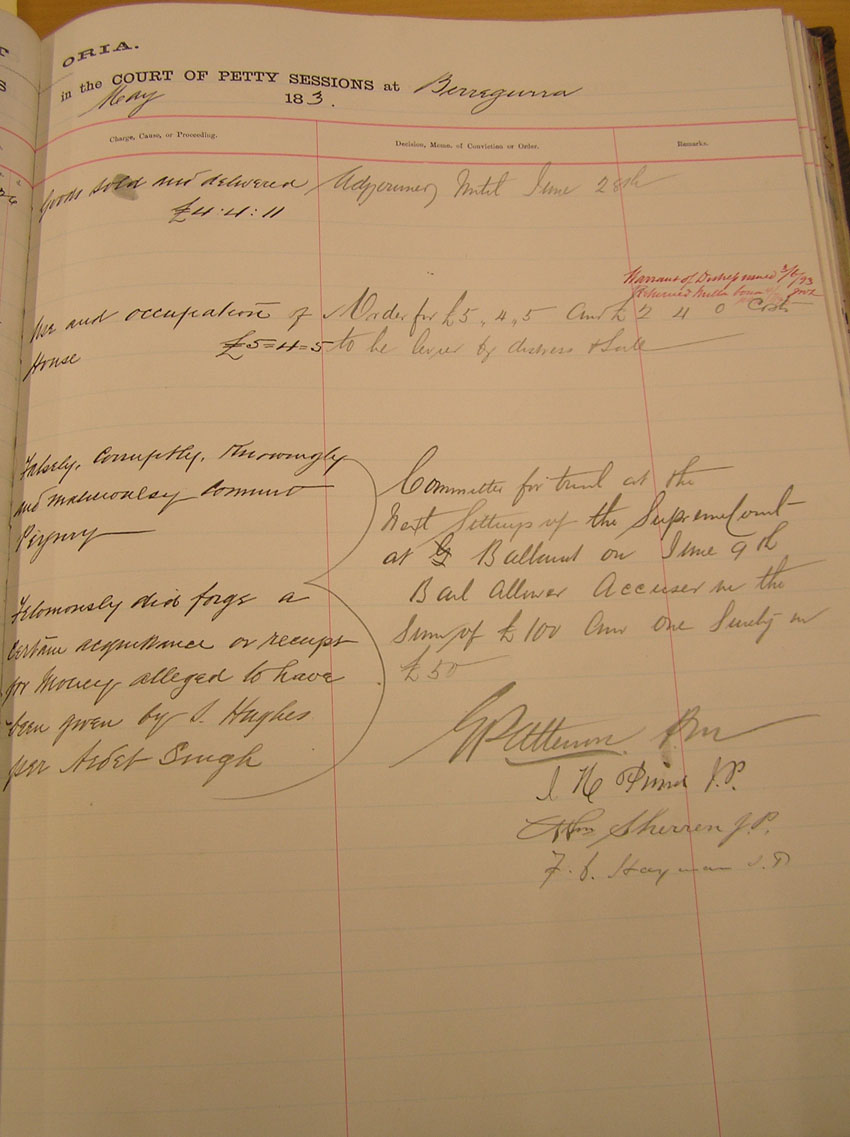 ORIA.
in the COURT OF PETTY SESSIONS at Birregurra
May 183 .
Charge, Cause, or Proceeding.
Decision, Mem. of Conviction or Order.
Remarks.
Goods sold and delivered
£4:4:11
Adjourned Until June 28th
Warrant of Distress issued 3/6/93
Returned
Use and occupation of
House £5=4=5
Order for £5,,4,,5 And £2 4 0 Costs
to be levied by distress & Sale
Falsely, Corruptly, Knowingly
and maliciously Commit
Perjury
Feloniously did forge a
Certain acquittance or receipt
for Money alleged to have
been given by S. Hughes
per Singh
Committed for trial at the
Next Sittings of the Supreme Court
at Ballarat on June 9th
Bail Allowed Accused in the
Sum of £100 And one Surety in
£50
G Patterson P.M
J.P.
Sherren J.P.
Hayman J.P